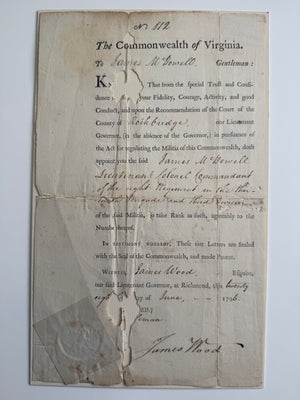 No 112
The Commonwealth of Virginia.
To James McDowell Gentleman:
K That from the special Trust and Confi-
dence your Fidelity, Courage, Activity, and good
Conduct, and upon the Recommendation of the Court of the
County of Rockbridge our Lieutenant
Governor, (in the absence of the Governor,) in pursuance of
the Act for regulating the Militia of this Commonwealth, doth
appoint you the said James McDowell
Lieutenant Colonel Commandant
of the eight Regiment in the thir-
teenth Brigade and third Division
of the said Militia, to take Rank as such, agreeably to the
Number thereof.
In testimony whereof, These our Letters are Sealed
with the Seal of the Commonwealth, and made Patent.
Witness, James Wood Esquire,
our said Lieutenant Governor, at Richmond, this twenty
eigh y of June, 1796.
James Wood